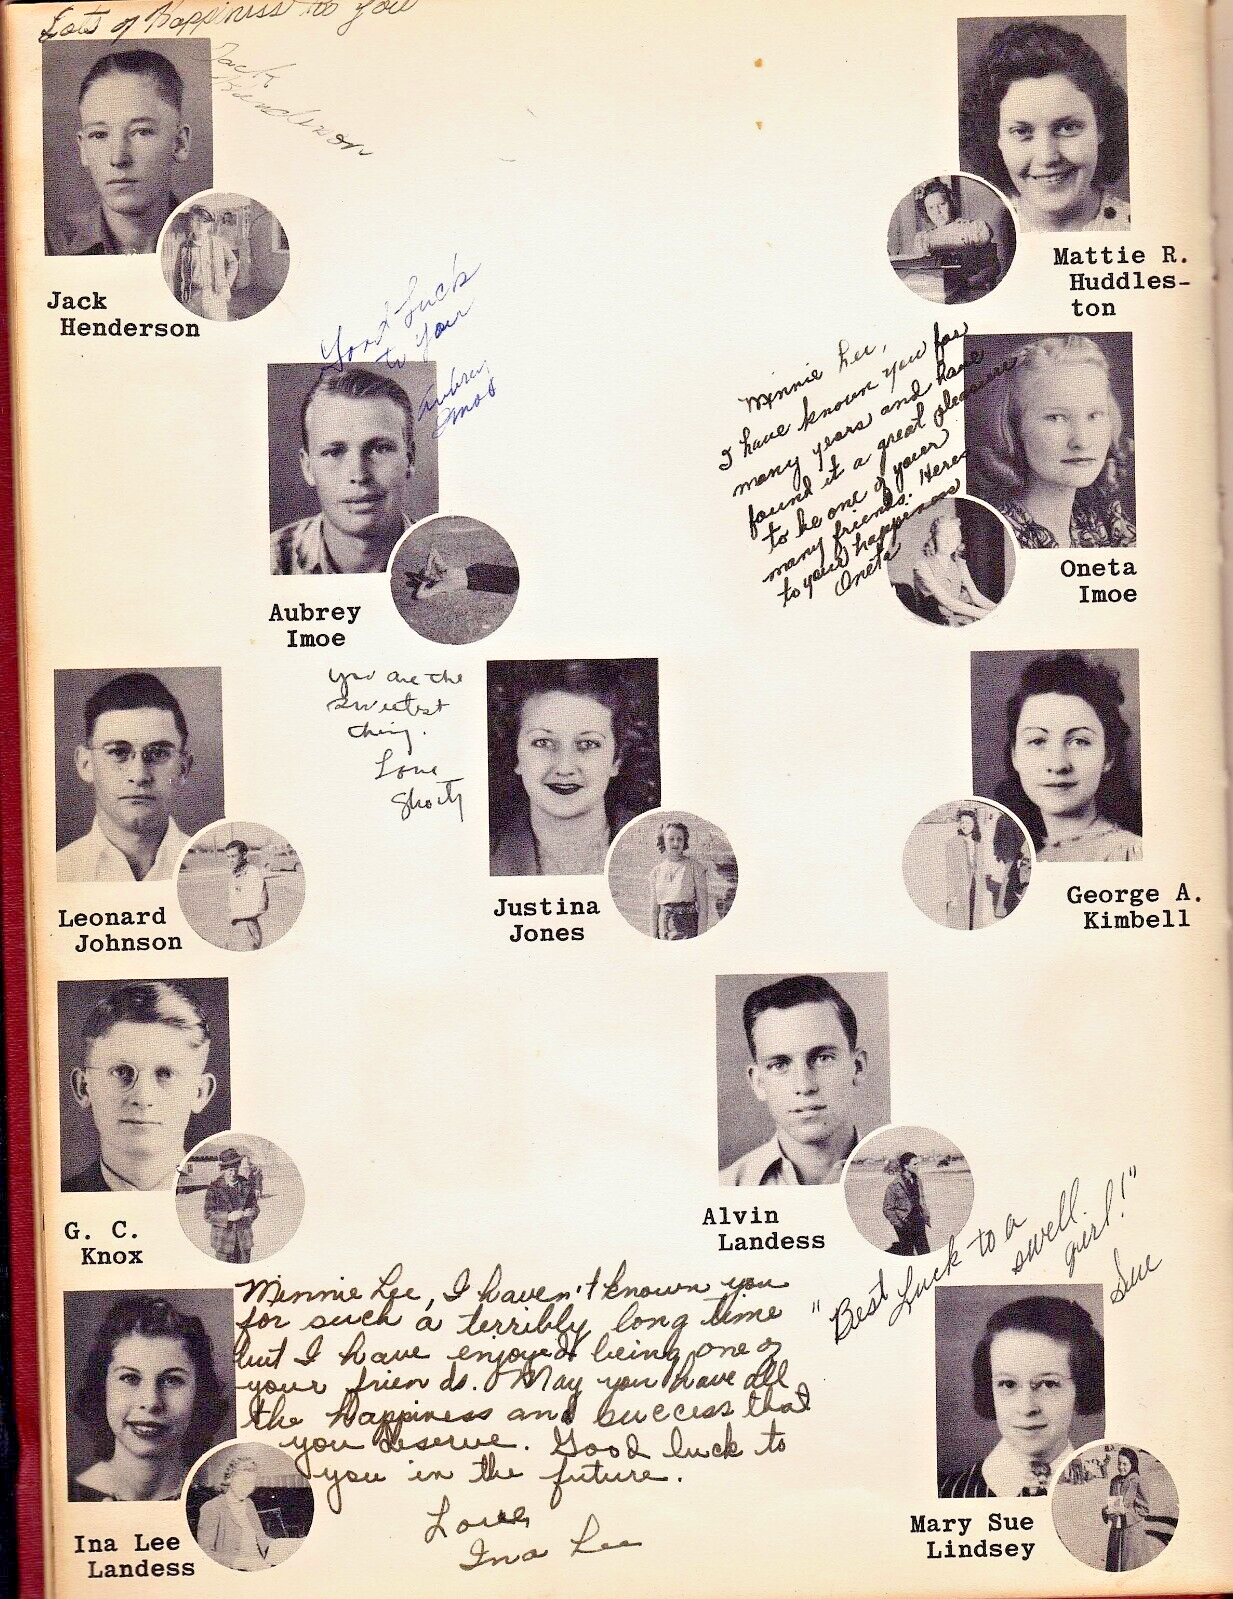 Lots of Happiness to you
Jack
Henderson
Jack
Henderson
Mattie R.
Huddles-
ton
Good Luck
to you
Aubrey
Imoe
Aubrey
Imoe
Minnie Lee,
I have known you for
many years and have
found it a great pleasure
to be one of your
many friends. Heres
to your happiness
Oneta
Oneta
Imoe
Leonard
Johnson
You are the
sweetest
thing.
Love
Shorty
Justina
Jones
George A.
Kimbell
G. C.
Knox
Alvin
Landess
Minnie Lee, I haven't known you
for such a terribly long time
but I have enjoyed being one of
your friends. May you have all
the happiness and success that
you deserve. Good luck to
you in the future.
Love,
Ina Lee
Ina Lee
Landess
"Best Luck to a
swell
girl!"
Sue
Mary Sue
Lindsey